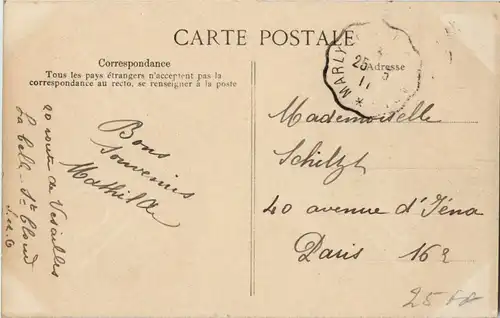 CARTE POSTALE
Correspondance
Tous les pays étrangers n'acceptent pas la
correspondance au recto, se renseigner à la poste
Adresse
MARLY
25
11
Bons
Souvenirs
Mathilde
20 route de Versailles
La Celle - St Cloud
S. et O
Mademoiselle
40 avenue d'Iéna
Paris 16e